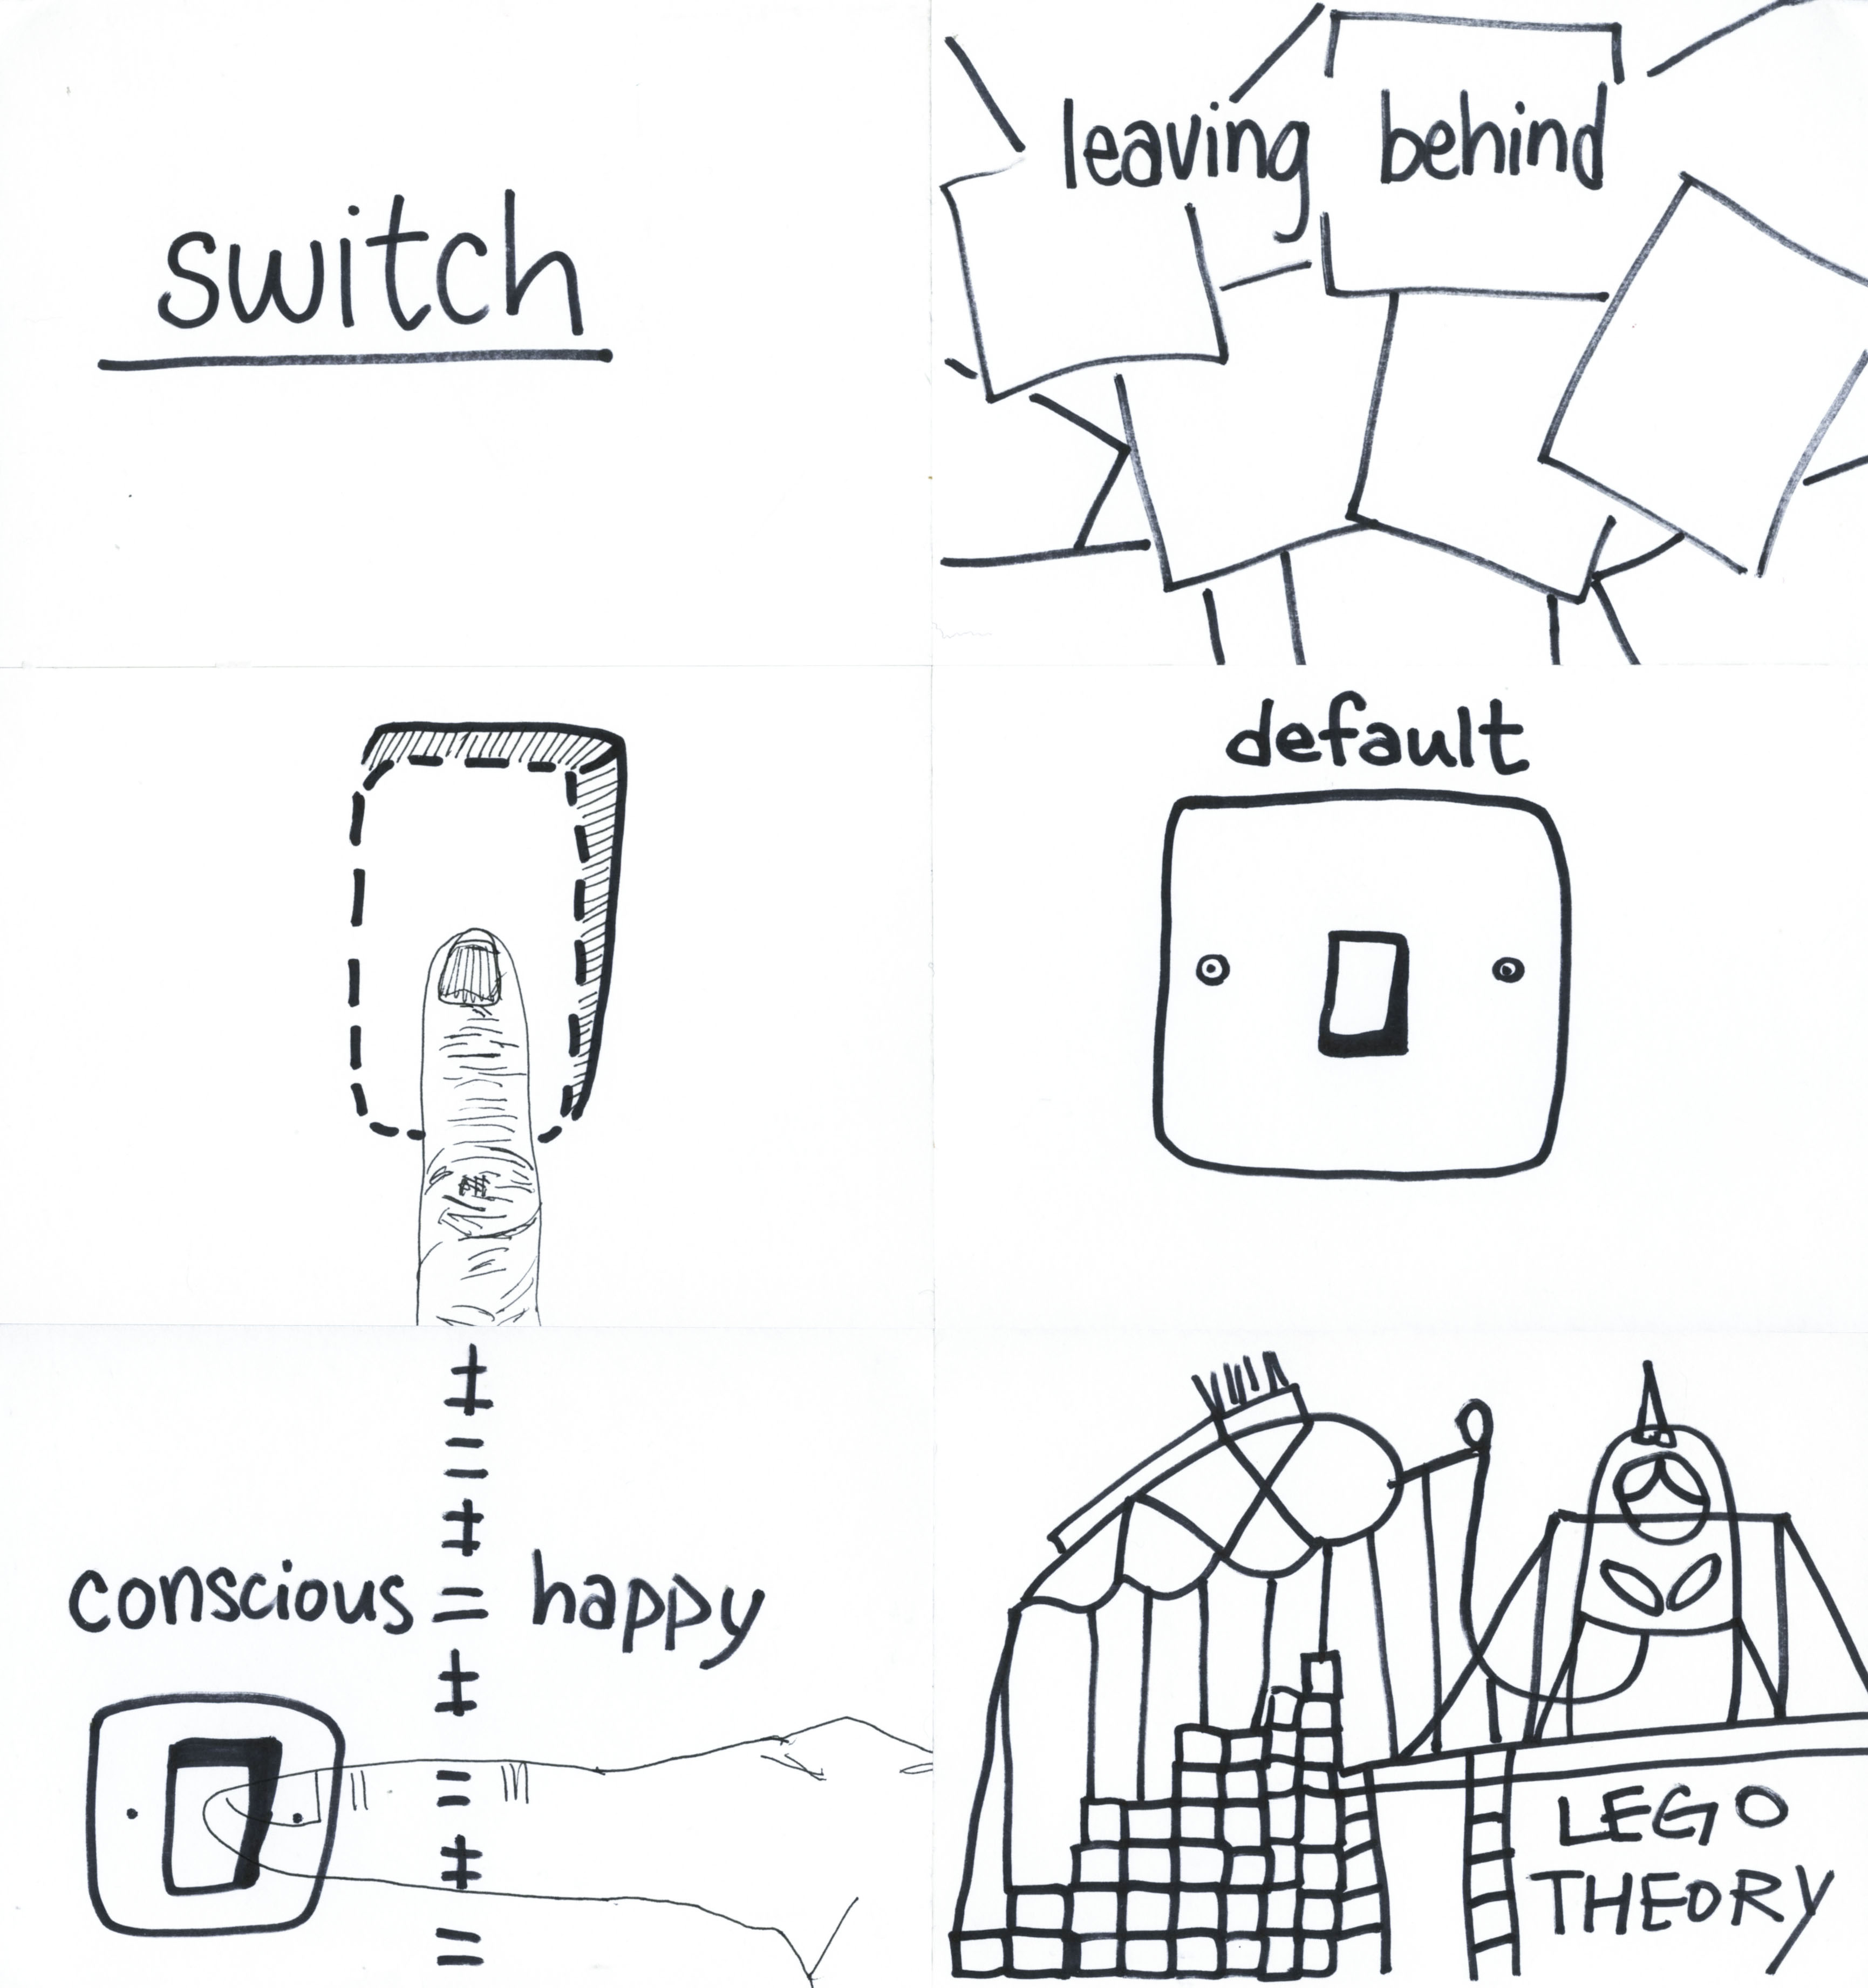 switch
leaving behind
default
conscious = happy
LEGO
THEORY